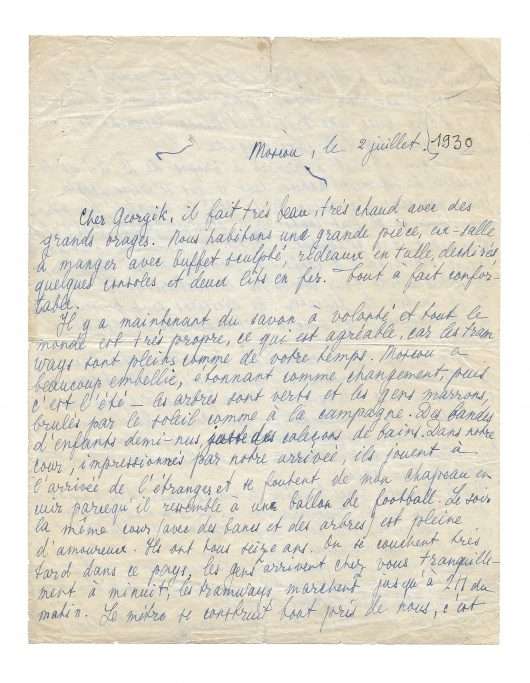 Moscou, le 2 juillet.) 1930
Cher Georgik, il fait très beau, très chaud avec des
grands orages. Nous habitons une grande pièce, ex-salle
à manger avec buffet sculpté, rideaux en tulle, déchirés,
quelques consoles et deux lits en fer. Tout à fait confor-
table.
Il y a maintenant du savon à volonté et tout le
monde est très propre, ce qui est agréable, car les tram
ways sont pleins comme de votre temps. Moscou a
beaucoup embellie, étonnant comme changement, puis
c'est l'été – les arbres sont verts et les gens marrons,
brulés par le soleil comme à la campagne. Des bandes
d'enfants demi-nus, caleçons de bains. Dans notre
cour, impressionnés par notre arrivée, ils jouent à
l'arrivée de l'étranger et se foutent de mon chapeau en
cuir parcequ'il ressemble à une ballon de football. Le soir
la même cour (avec des bancs et des arbres) est pleine
d'amoureux. Ils ont tous seize ans. On se couchent très
tard dans ce pays, les gens arrivent chez vous tranquille-
ment à minuit, les tramways marchent jusqu'à 2 H du
matin. Le métro se construit tout près de nous, c'est